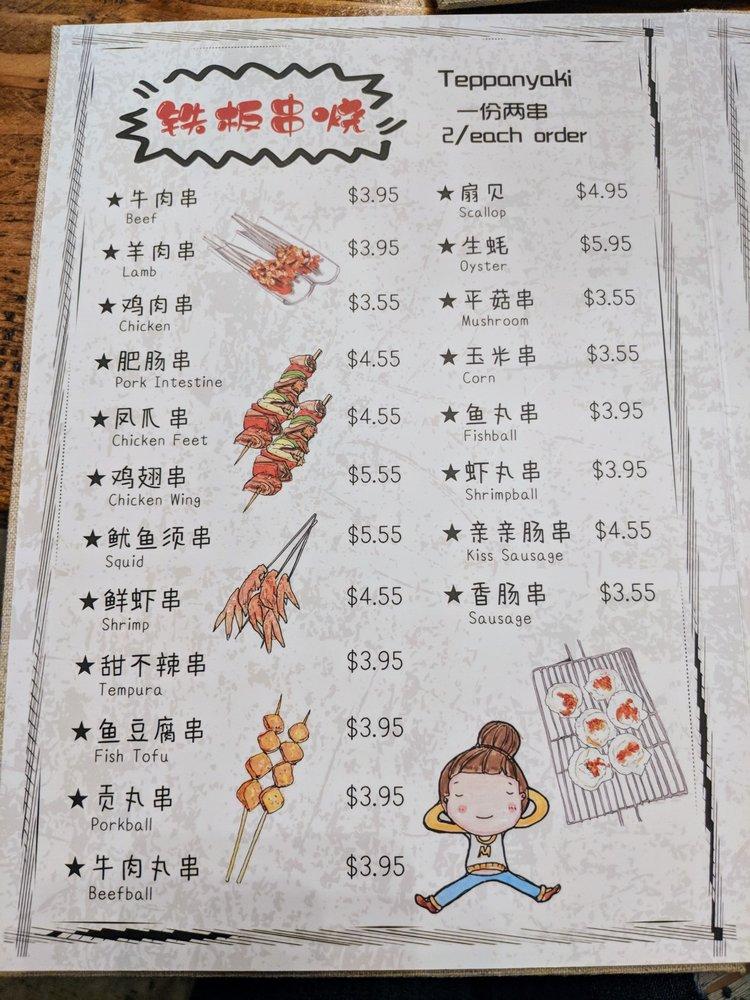 铁板串烧
Teppanyaki
一份两串
2/each order
★牛肉串 $3.95
Beef
★羊肉串 $3.95
Lamb
★鸡肉串 $3.55
Chicken
★肥肠串 $4.55
Pork Intestine
★凤爪串 $4.55
Chicken Feet
★鸡翅串 $5.55
Chicken Wing
★鱿鱼须串 $5.55
Squid
★鲜虾串 $4.55
Shrimp
★甜不辣串 $3.95
Tempura
★鱼豆腐串 $3.95
Fish Tofu
★贡丸串 $3.95
Porkball
★牛肉丸串 $3.95
Beefball
★扇贝 $4.95
Scallop
★生蚝 $5.95
Oyster
★平菇串 $3.55
Mushroom
★玉米串 $3.55
Corn
★鱼丸串 $3.95
Fishball
★虾丸串 $3.95
Shrimpball
★亲亲肠串 $4.55
Kiss Sausage
★香肠串 $3.55
Sausage
M